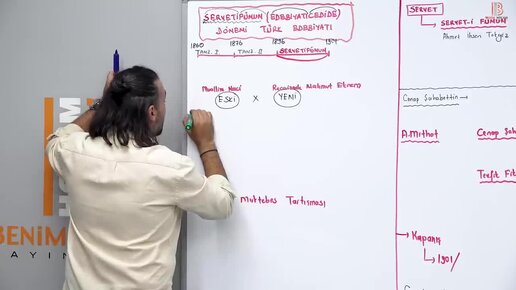 SERVETİFÜNUN (EDEBİYATICEDİDE)
DÖNEMİ TÜRK EDEBİYATI
1860 1876 1896 1901
TANZ. I TANZ. II SERVETİFÜNUN
Muallim Naci Recaizade Mahmut Ekrem
ESKİ X YENİ
Muktebas Tartışması
SERVET
SERVET-İ FÜNUN
Ahmet İhsan Tokgöz
Cenap Şahabettin
A.Mithat Cenap Şahab
Tevfik Fik
Kapanış
1901/
BENİM
YAYIN